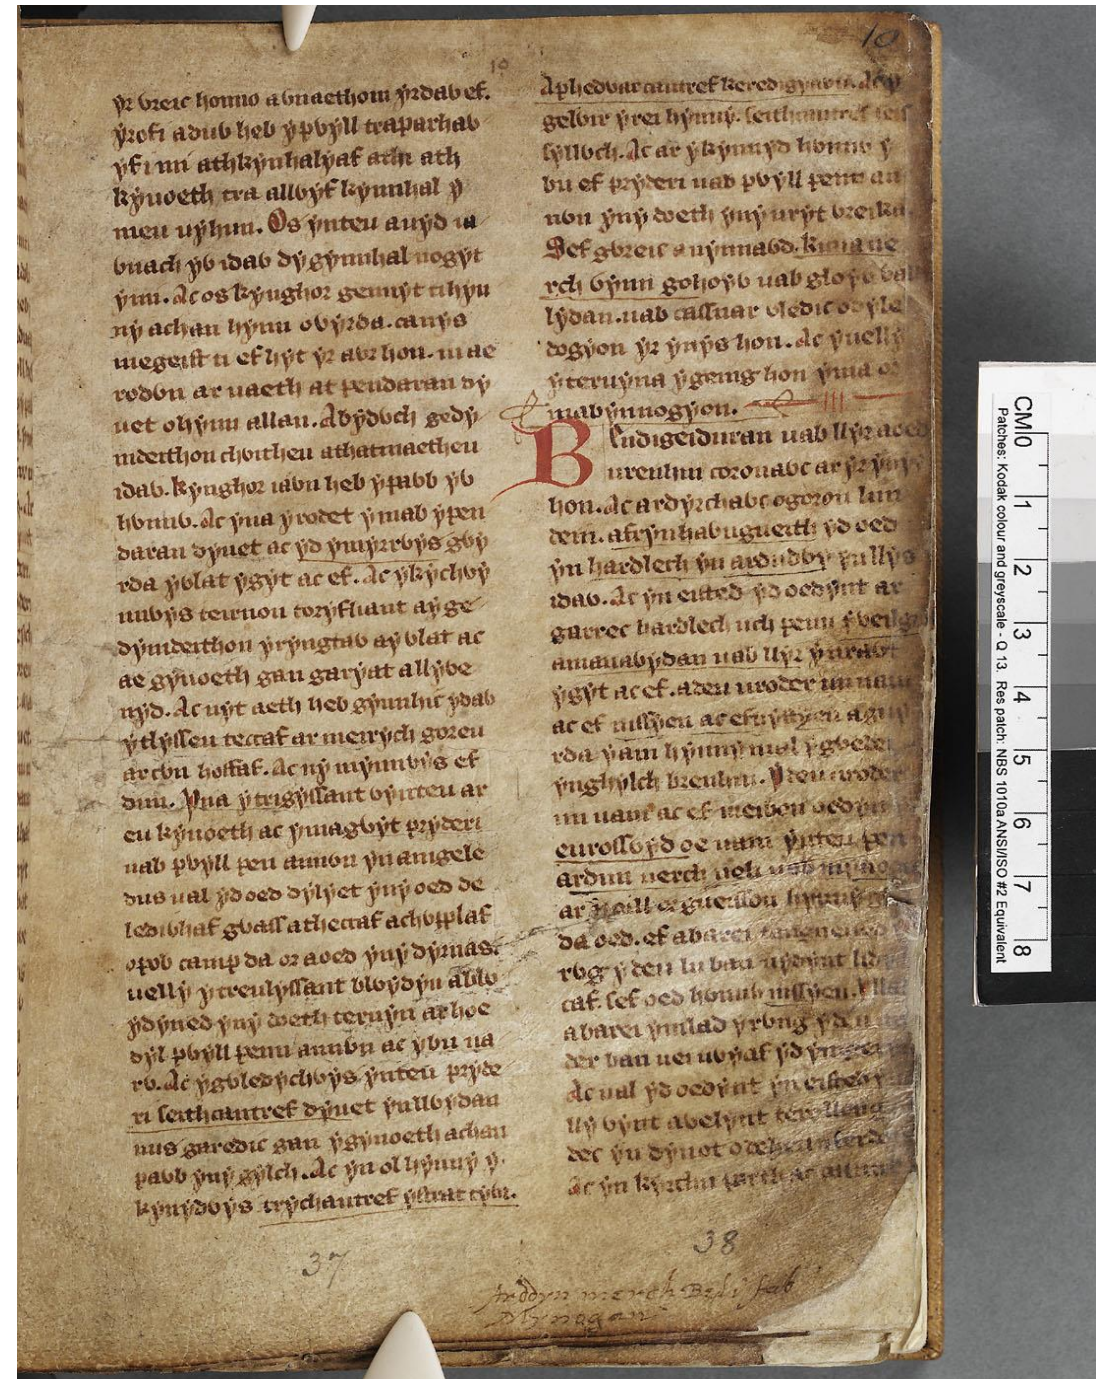 10
10
yr vreic honno a bnaethom yrdab ef.
yrof i a dub heb y pbyll tra parhab
yf i mi ath kynhalyaf athi ath
kynoeth tra allbyf kynnhal y
meu uyhun. Os ynteu auyd ia
bnach yb idab dy gynnhal nogyt
ymi. Ac os kynghor gennyt ti hyn
ny a chan hynn o byrda. canys
megeist ti ef hyt yr abr hon. ni ae
rodbn ar uaeth at pendaran dy
uet o hynn allan. A bydbch gedy
mdeithon chbitheu a thatmaetheu
idab. kynghor iabn heb y pabb yb
hbnnb. Ac yna y rodet y mab y pen
daran dyuet ac yd ymyrrbys gby
rda y blat ygyt ac ef. Ac y kychby
nnbys teirnon toryfliant a y ge
dymdeithon y ryngtab a y blat ac
ae gynoeth gan garyat a llybe
nyd. Ac nyt aeth heb gynnhic ydab
y tlysseu teccaf ar meirych goreu
ar cbn hoffaf. Ac ny mynnbys ef
dim. Yna y trigyssant bynteu ar
eu kynoeth ac y magbyt pryderi
uab pbyll pen annbn yn amgele
dus ual yd oed dylyet yny oed de
ledibhaf gbass a theccaf a chbpplaf
o pob camp da or a oed yny dyrnas.
uelly y treulyssant blbydyn a blb
ydyned yny doeth teruyn ar hoe
dyl pbyll penn annbn ac y bu ua
rb. Ac y gbledychbys ynteu pryde
ri seith cantref dyuet yn llbydan
nus garedic gan y gynoeth a chan
pabb yny gylch. Ac yn ol hynny y
kynydbys trychantref ystrat tybi.
37
A phedbar cantref keredigyabn. Ac y
gelbir y rei hynny. seith cantref seis
syllbch. Ac ar y kynnyd hbnnb y
bu ef pryderi uab pbyll penn an
nbn yny doeth yny uryt breika.
Sef gbreic a uynnabd. kicua ue
rch bynn gohoyb uab gloyb bal
lydan. uab cassnar bledic o dyle
dogyon yr ynys hon. Ac yuelly
y teruyna y geing hon yma or
mabynnogyon. III
Bendigeiduran uab llyr a oed
urenhin coronabc ar yr ynys
hon. Ac ardyrchabc o goron lun
dein. a frynhabngueith yd oed
yn hardlech yn ardudby yn llys
idab. Ac yn eisted yd oedynt ar
garrec hardlech uch penn y beilgi
a manabydan uab llyr y urabt
ygyt ac ef. a deu uroder un uam
ac ef nissyen ac efnyssyen a gby
rda y am hynny mal y gbedei
ynghylch brenhin. Y deu uroder
un uam ac ef meibon oedynt
eurossbyd oe uam ynteu pen
ardun uerch ueli uab mynogan
ar neill or gueisson hynny gbas
da oed. ef a barei tangneued
rbg y deu lu ban uydynt lidy
caf. sef oed hbnnb nissyen. Y llall
a barei ymlad y rbng y deu uro
der ban uei uwyaf yd ymger
Ac ual yd oedynt yn eisted y
lly bynt a belynt teir llong
dec yn dyuot o deheu iberdon
Ac yn kyrchu parth ac attunt
38
Arddyn merch Beli fab
Mynogan
CM 0 1 2 3 4 5 6 7 8
Patches: Kodak colour and greyscale - Q 13. Res patch: NBS 1010a ANSI/ISO #2 Equivalent